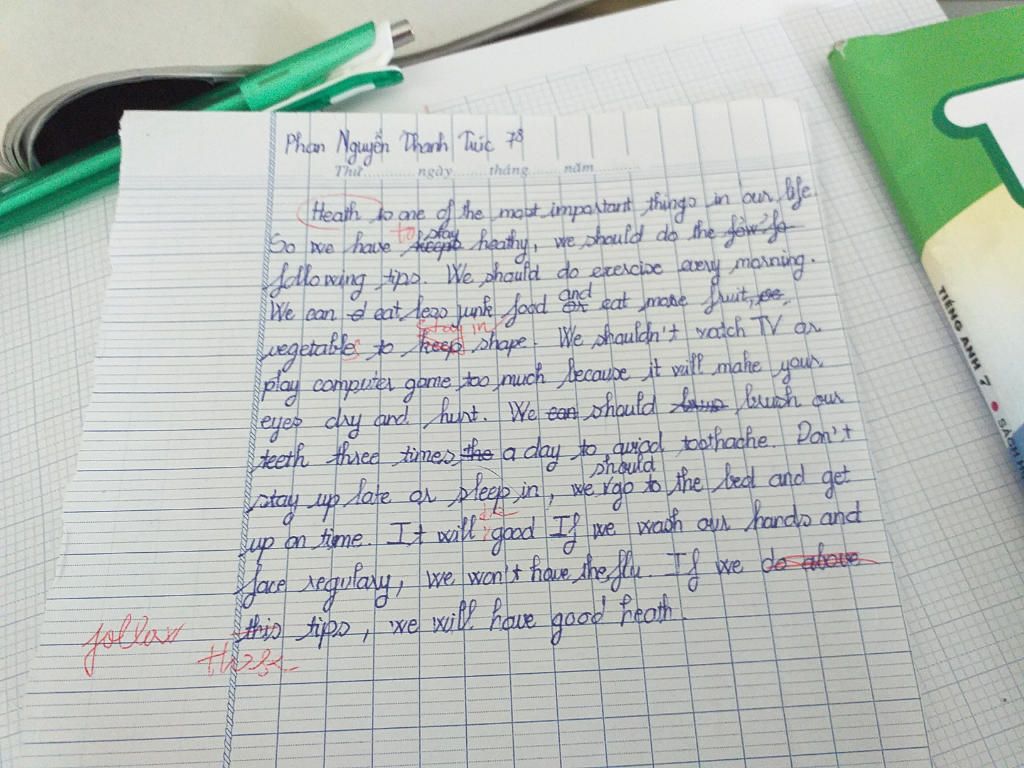 Phan Nguyễn Thanh Trúc 78
Thứ ngày tháng năm
Heath is one of the most important things in our life.
So we have to stay heathy, we should do the
following tips. We should do exercise every morning.
We can eat less junk food and eat more fruit,
vegetables to stay in shape. We shouldn't watch TV or
play computer game too much because it will make your
eyes dry and hurt. We should brush our
teeth three times a day to aviod toothache. Don't
stay up late or sleep in, we should go to the bed and get
up on time. It will be good If we wash our hands and
face regulary, we won't have the flu. If we do above
follow this tips, we will have good heath.
these
TIẾNG ANH 7
SÁCH